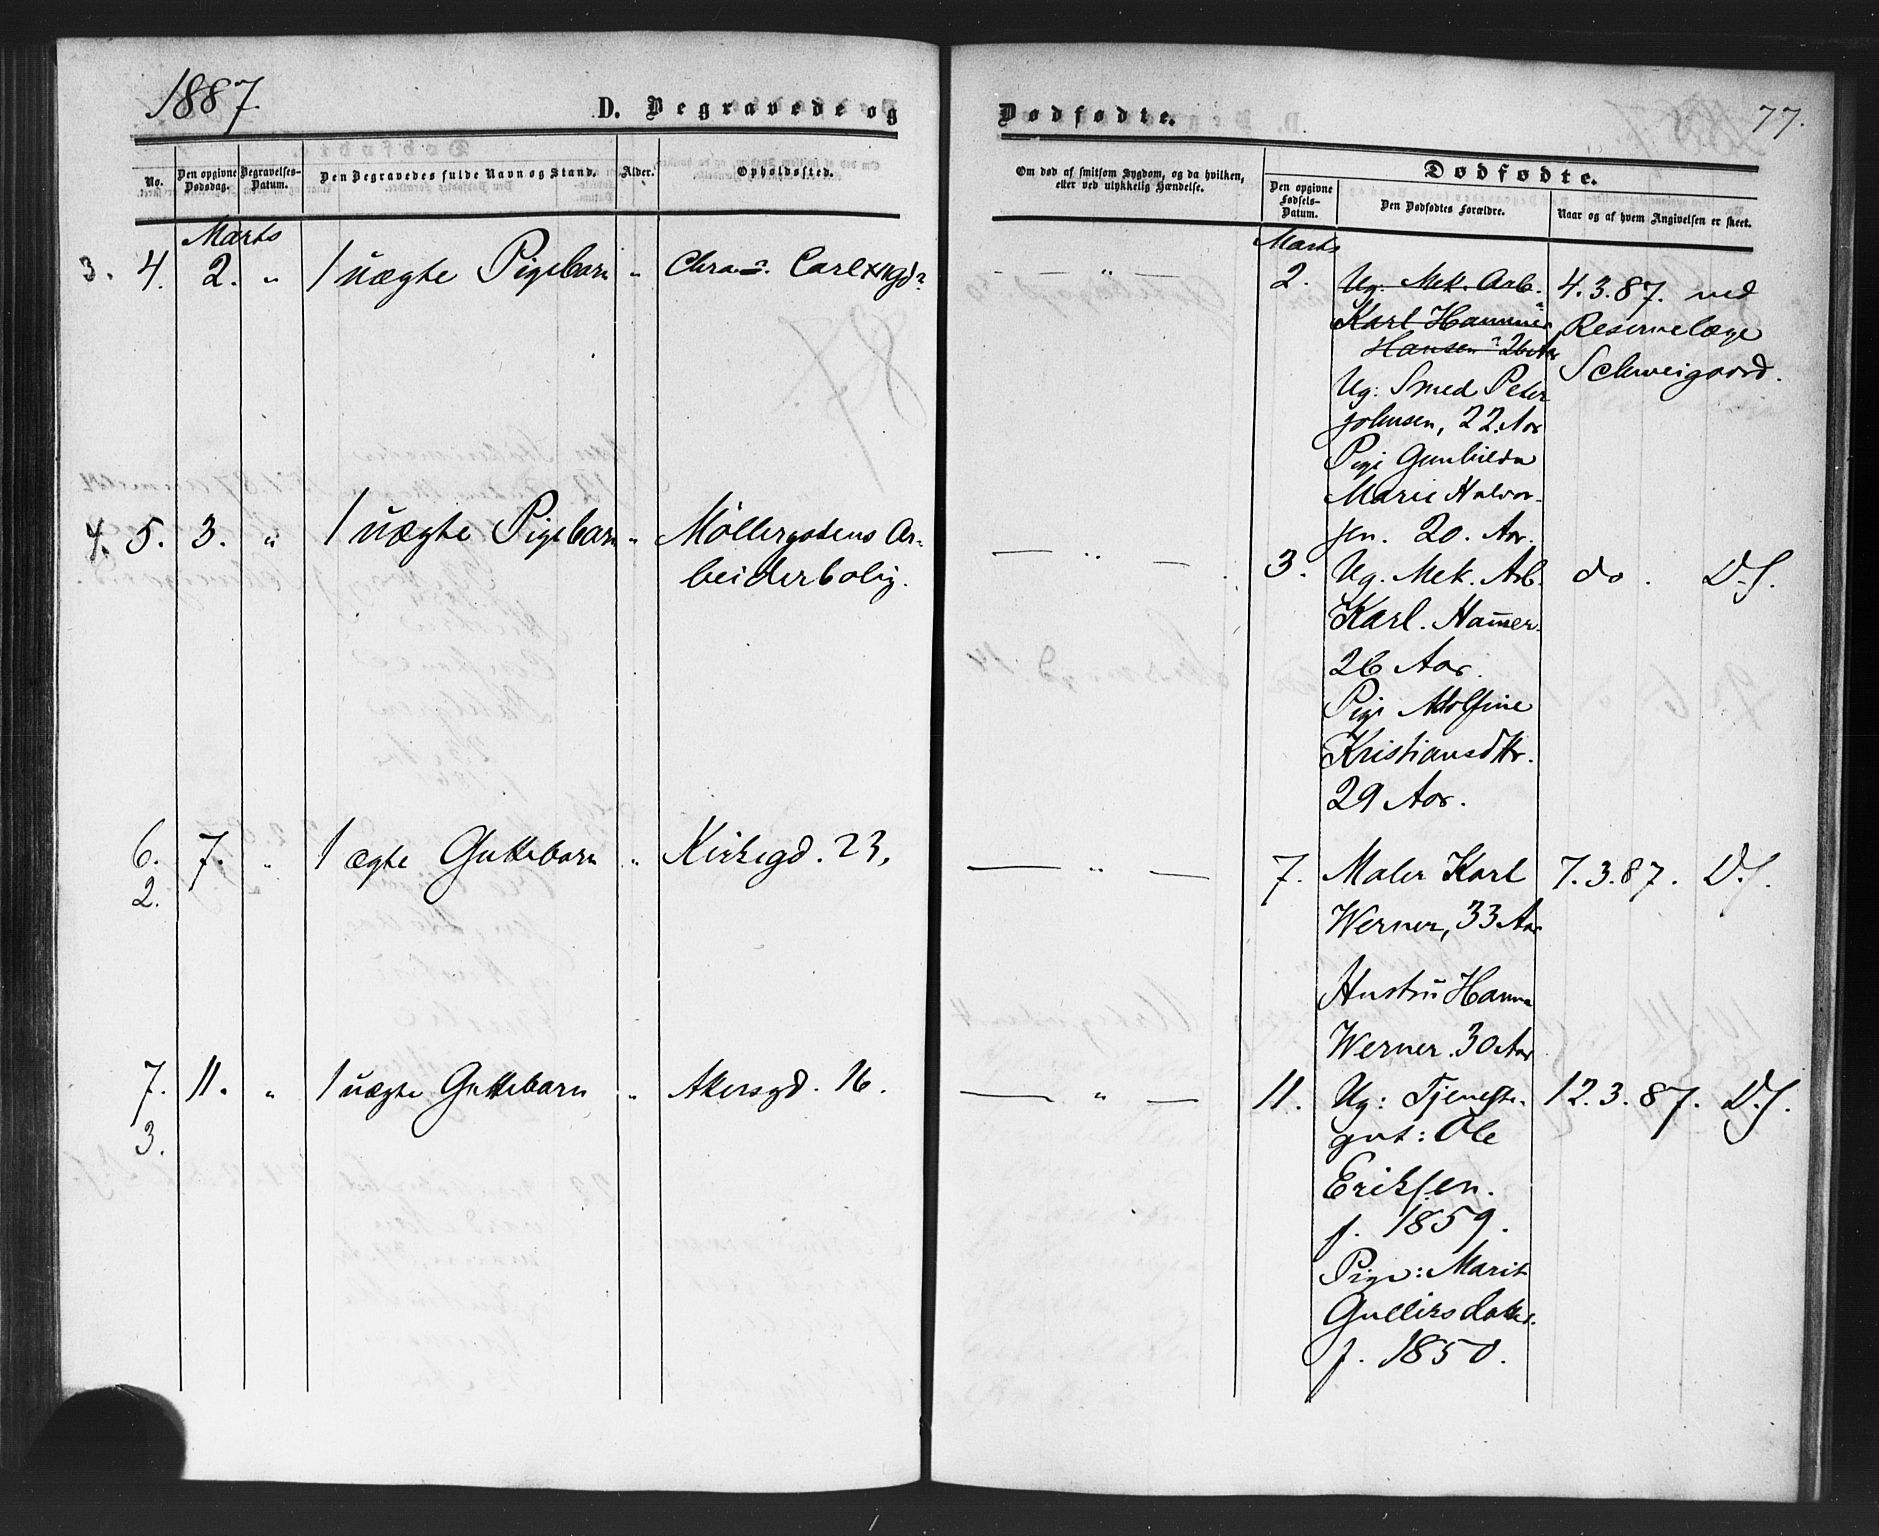 1887.
D. Begravede og
No.
Den opgivne Dødsdag.
Begravelses-Datum.
Den Begravedes fulde Navn og Stand.
Alder.
Opholdssted.
Marts
3. 4. 2. " 1 uægte Pigebarn "
4. 5. 3. " 1 uægte Pigebarn " Møllergodens Ar-
beiderbolig.
6. 7. " 1 ægte Guttebarn " Kirkegd. 23.
2.
7. 11. " 1 uægte Guttebarn " Akersgd. 16.
3.
Dødfødte.
77.
Om død af smitsom Sygdom, og da hvilken,
eller ved ulykkelig Hændelse.
Dødfødte.
Den opgivne
Fødsels-
Datum.
Den Dødfødtes Forældre.
Naar og af hvem Angivelsen er skeet.
Marts
— — " — 2. Ug. Mek. Arb. 4.3.87. ved
Karl Hammer Reservelæge
Hansen 26 Aar Schweigaard.
Ug: Smed Peter
Johnsen, 22. Aar
Pige Gunhilda
Marie Halvor-
sen. 20. Aar.
— " — 3. Ug. Mek. Arb. do. D.S.
Karl. Ham̅er.
26 Aar.
Pige Adolfine
Kristiansdtr.
29 Aar.
— " — 7. Maler Karl 7.3.87. D.S.
Werner, 33 Aar
Hustru Hanna
Werner. 30 Aar
— " — 11. Ug: Tjeneste- 12.3.87. D.S.
gut: Ole
Eriksen.
f. 1859.
Pige: Marit
Gulliksdatter.
f. 1850.